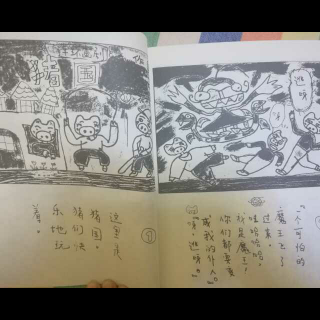 猪国
这里是
猪国。
猪们快
乐地玩
着。
逃呀
一个可怕的
魔王
过来。
哇哈哈哈，
我是魔王，
你们都要变
成我的仆人。
呀，逃呀。